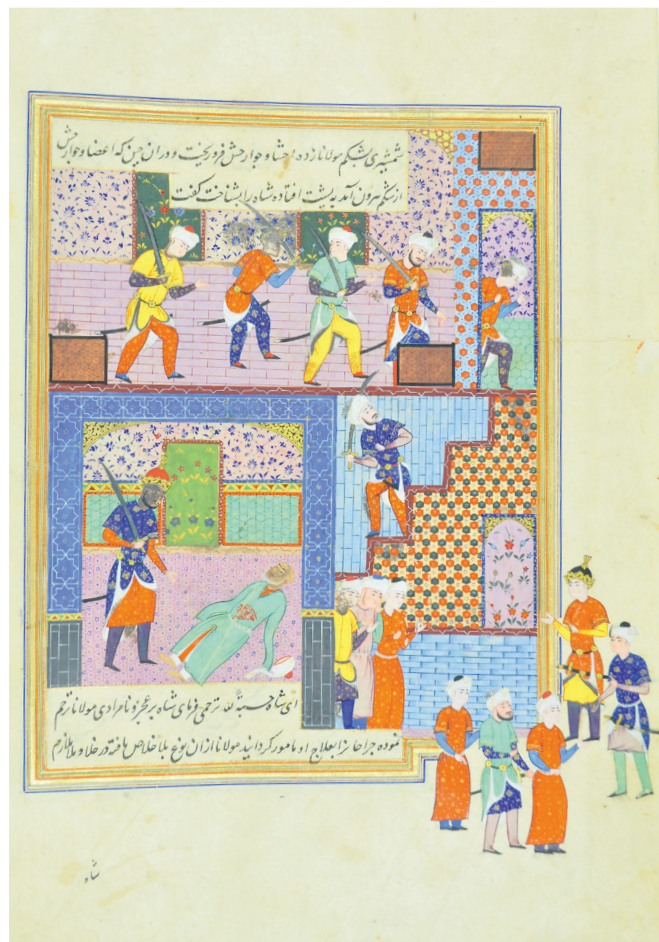 شمشیری بشکم مولانا زده احشا و جوارحش فرو ریخت و در ان حین که اعضا و جوارحش
از شکم بیرون آمد به پشت افتاده شاه را بشناخت گفت
ای شاه حسبة لله ترحمی فرمای شاه بر عجز و نامرادی مولانا ترحم
نموده جراحانرا بعلاج او مامور کردانید مولانا ازان بلا خلاص یافته در خلا و ملا ملازم
شاه